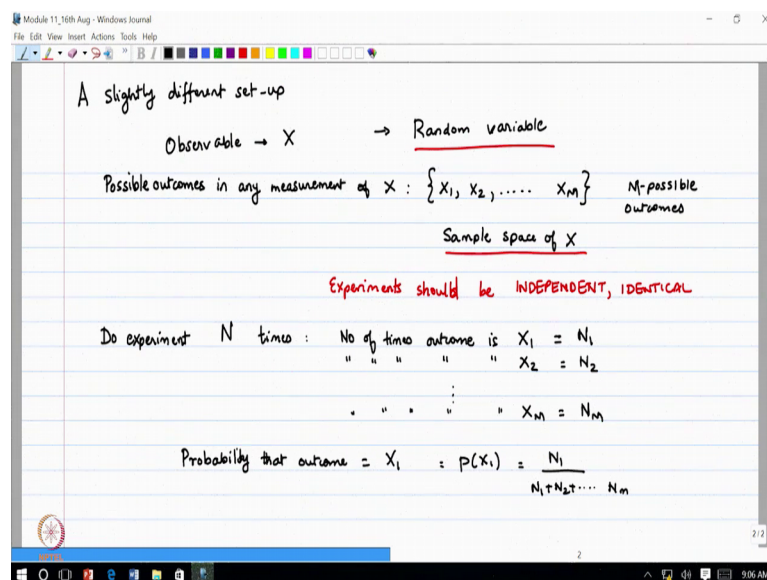 Module 11_16th Aug - Windows Journal
File Edit View Insert Actions Tools Help
A slightly different set-up
Observable → X → Random variable
Possible outcomes in any measurement of X : {X1, X2, ..... XM} M-possible
outcomes
Sample space of X
Experiments should be INDEPENDENT, IDENTICAL
Do experiment N times : No of times outcome is X1 = N1
" " " " " X2 = N2
⋮
" " " " " XM = NM
Probability that outcome = X1 = P(X1) = N1
N1+N2+.... Nm
2/2
2
9:06 AM